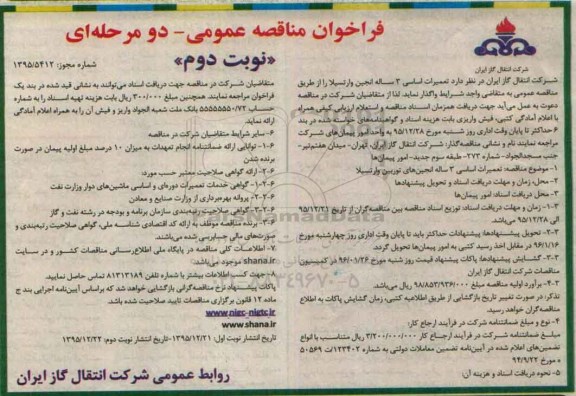 فراخوان مناقصه عمومی- دو مرحله‌ای
«نوبت دوم»
شماره مجوز: ۱۳۹۵/۵۴۱۲
شرکت انتقال گاز ایران
شرکت انتقال گاز ایران در نظر دارد تعمیرات اساسی ۳ ساله انجین وارتسیلا را از طریق
مناقصه عمومی به متقاضی واجد شرایط واگذار نماید. لذا از متقاضیان شرکت در مناقصه
دعوت به عمل می‌آید جهت دریافت همزمان اسناد مناقصه و استعلام ارزیابی کیفی همراه
با اعلام آمادگی کتبی، فیش واریزی بابت هزینه اسناد و گواهینامه‌های خواسته شده در بند
۶ حداکثر تا پایان وقت اداری روز شنبه مورخ ۹۵/۱۲/۲۸ به واحد امور پیمان‌های شرکت
مراجعه نمایند نام و نشانی مناقصه‌گذار: شرکت انتقال گاز ایران، تهران- میدان هفتم‌تیر-
جنب مسجدالجواد- شماره ۲۷۳- طبقه سوم جدید- امور پیمان‌ها
۱- موضوع مناقصه: تعمیرات اساسی ۳ ساله انجین‌های توربین وارتسیلا
۲- محل، زمان و مهلت دریافت اسناد و تحویل پیشنهادها
۳- محل دریافت اسناد: امور پیمان‌ها
۳-۱- زمان و مهلت دریافت اسناد: توزیع اسناد مناقصه بین مناقصه‌گران از تاریخ ۹۵/۱۲/۲۱
الی ۹۵/۱۲/۲۸ می‌باشد.
۳-۲- تحویل پیشنهادها: پیشنهادات حداکثر باید تا پایان وقت اداری روز چهارشنبه مورخ
۹۶/۱/۱۶ در مقابل اخذ رسید کتبی به امور پیمان‌ها تحویل گردد.
۳-۳- گشایش پیشنهادها: پاکات پیشنهاد قیمت روز شنبه مورخ ۹۶/۰۱/۲۶ در کمیسیون
مناقصات شرکت انتقال گاز ایران
۳-۴- برآورد اولیه مناقصه مبلغ ۹۸/۸۵۳/۹۳۶/۰۰۰ ریال می‌باشد.
تذکر: در صورت تغییر تاریخ بازگشایی از طریق اطلاعیه کتبی، زمان گشایش پاکات به اطلاع
مناقصه‌گران خواهد رسید.
۴- نوع و مبلغ ضمانتنامه شرکت در فرآیند ارجاع کار:
مبلغ ضمانتنامه شرکت در فرآیند ارجاع کار ۳/۲۰۰/۰۰۰/۰۰۰ ریال متناسب با انواع
تضمین‌های اعلام شده در آیین‌نامه تضمین معاملات دولتی به شماره ۱۲۳۴۰۲/ت ۵۰۶۵۹
ه مورخ ۹۴/۹/۲۲
۵- نحوه دریافت اسناد و هزینه آن:
متقاضیان شرکت در مناقصه جهت دریافت اسناد می‌توانند به نشانی قید شده در بند یک
فراخوان مراجعه نمایند. همچنین مبلغ ۳۰۰/۰۰۰ ریال بابت هزینه تهیه اسناد را به شماره
حساب ۵۵۵۵۵۵۵۰/۷۲ بانک ملت شعبه الجواد واریز و فیش آن را به همراه اعلام آمادگی
ارائه نماید.
۶- سایر شرایط متقاضیان شرکت در مناقصه
۶-۱- توانایی ارائه ضمانتنامه انجام تعهدات به میزان ۱۰ درصد مبلغ اولیه پیمان در صورت
برنده شدن
۶-۲- ارائه گواهی صلاحیت معتبر حسب مورد:
۶-۲-۱- گواهی خدمات تعمیرات دوره‌ای و اساسی ماشین‌های دوار وزارت نفت
۶-۲-۲- پروانه بهره‌برداری از وزارت صنایع و معادن
۶-۲-۳- گواهی صلاحیت رتبه‌بندی سازمان برنامه و بودجه در رشته نفت و گاز
۶-۳- برنده مناقصه موظف به ارائه کد اقتصادی شناسه ملی، گواهی صلاحیت رتبه‌بندی و
صورت‌های مالی حسابرسی شده می‌باشند.
۷- اطلاعات کلی مناقصه در پایگاه ملی اطلاع‌رسانی مناقصات کشور و در سایت
shana.ir موجود می‌باشد.
۸- جهت کسب اطلاعات بیشتر با شماره تلفن ۸۱۳۱۳۱۸۹ تماس حاصل نمایید.
پاکات پیشنهاد نرخ مناقصه‌گرانی بازگشایی خواهد شد که براساس آیین‌نامه اجرایی بند ج
ماده ۱۲ قانون برگزاری مناقصات تایید صلاحیت شده باشد.
www.nigc-nigtc.ir
www.shana.ir
تاریخ انتشار نوبت اول: ۱۳۹۵/۱۲/۲۱-تاریخ انتشار نوبت دوم: ۱۳۹۵/۱۲/۲۲
روابط عمومی شرکت انتقال گاز ایران